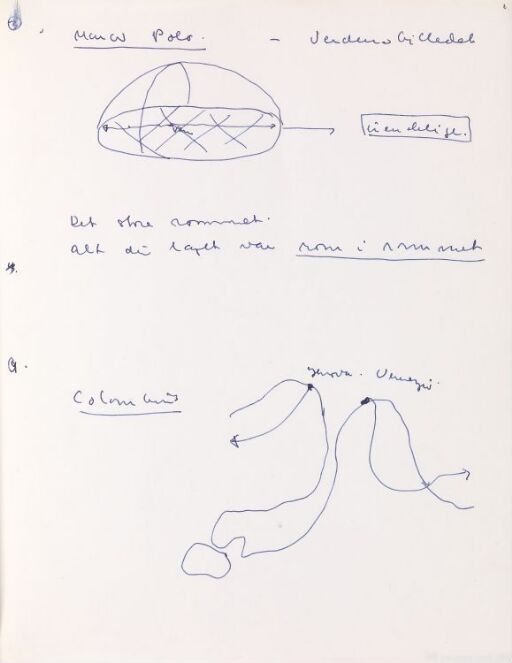 Marco Polo. - Verdensbilledet
uendelige.
Det store rommet.
alt de laget var rom i rommet
Colombus
Genova. Venezia.